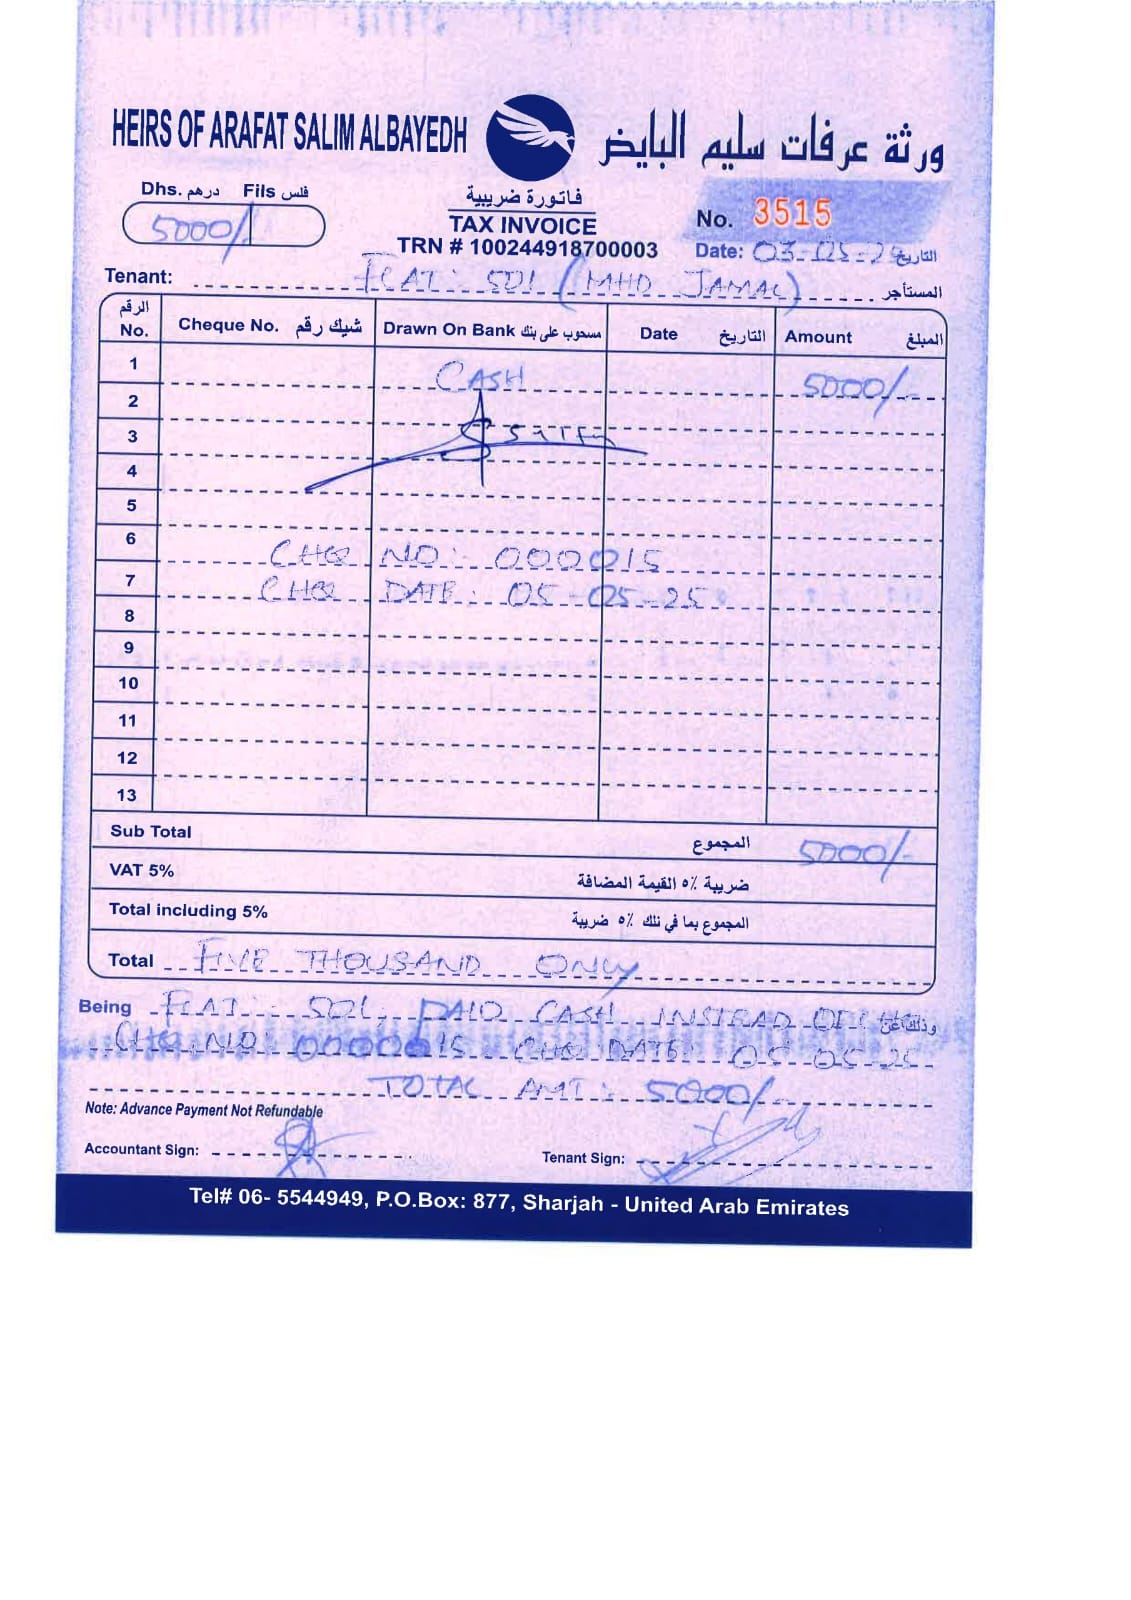 HEIRS OF ARAFAT SALIM ALBAYEDH ورثة عرفات سليم البايض
Dhs. درهم Fils فلس
5000/
فاتورة ضريبية
TAX INVOICE
TRN # 100244918700003
No. 3515
Date: 03-05-25 التاريخ
Tenant: FLAT: 501 (MHD JAMAL) المستأجر
الرقم No. Cheque No. شيك رقم Drawn On Bank مسحوب على بنك Date التاريخ Amount المبلغ
1 CASH 5000/-
2
3
4
5
6 CHQ NO:- 000015
7 CHQ DATE: 05-05-25
8
9
10
11
12
13
Sub Total المجموع 5000/-
VAT 5% ضريبة ٥٪ القيمة المضافة
Total including 5% المجموع بما في تلك ٥٪ ضريبة
Total FIVE THOUSAND ONLY
Being FLAT: 501, PAID CASH INSTEAD OF CHQ وذلك عن
CHQ NO 0000015 CHQ DATE: 05-05-25
TOTAL AMT: 5000/-
Note: Advance Payment Not Refundable
Accountant Sign:
Tenant Sign:
Tel# 06- 5544949, P.O.Box: 877, Sharjah - United Arab Emirates